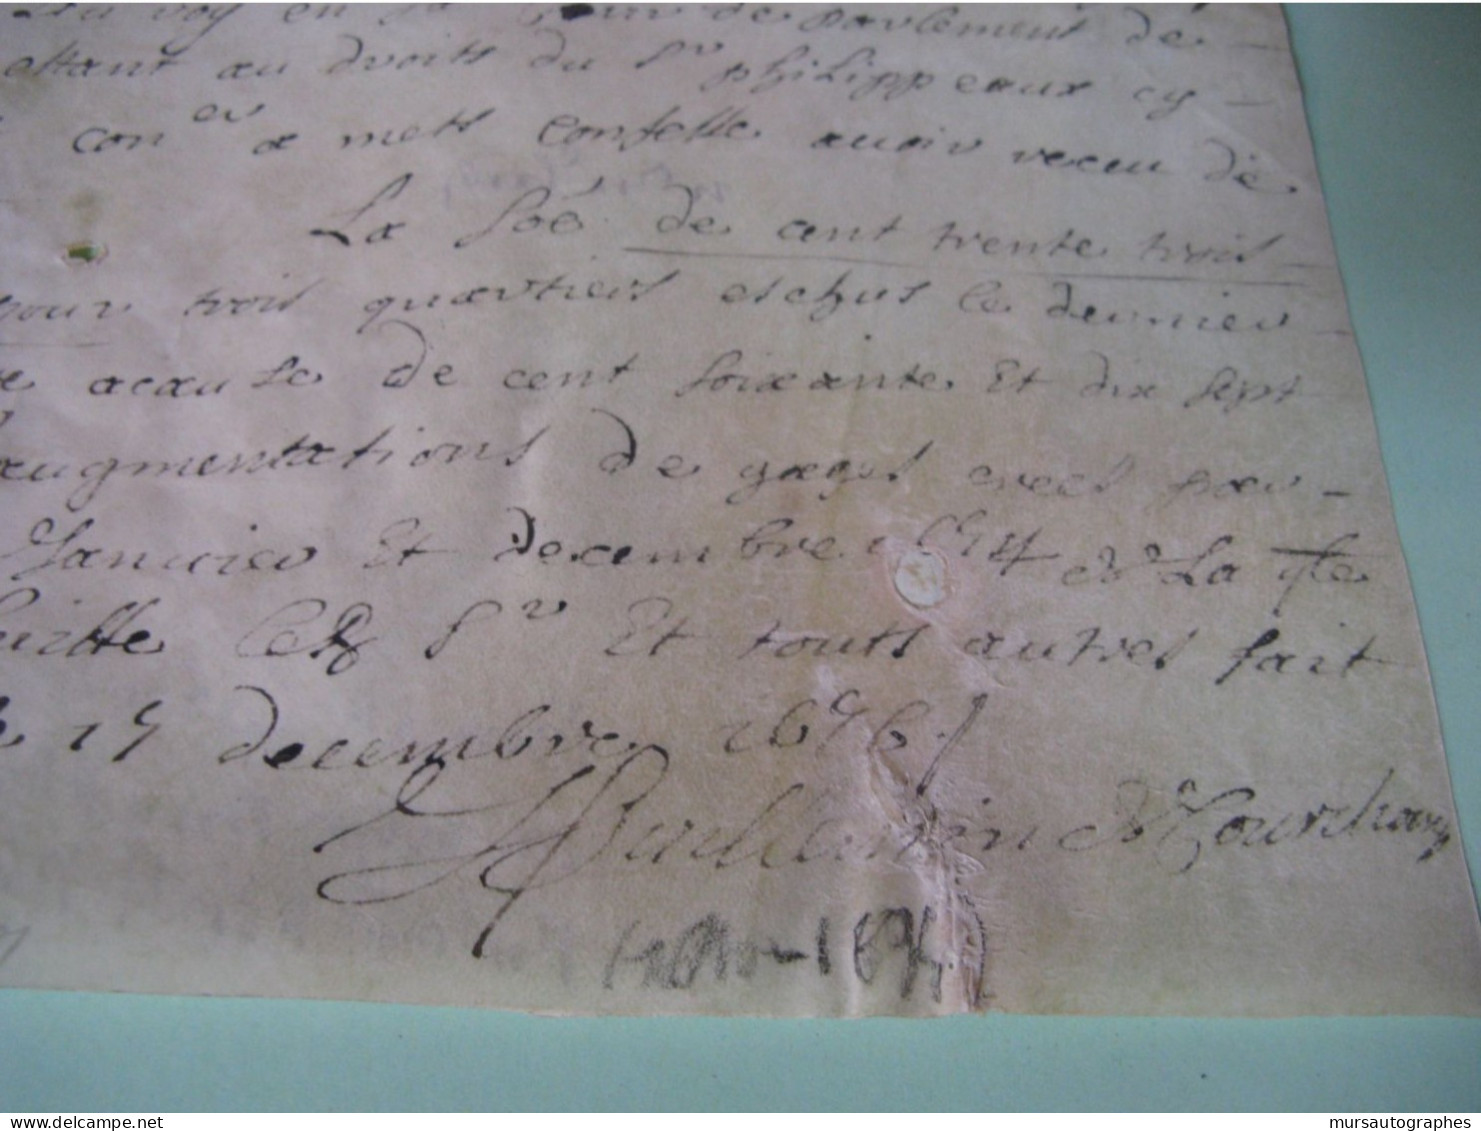 du roy en sa Cour de parlement de
estant au droits du Sr philippeaux cy
coner a mets confesse auoir receu de
La soé de cent trente trois
pour trois quartiers eschus le dernier
acause de cent soixante Et dix sept
augmentations de gages creés par
Januier Et decembre 1674 & La qte
quitte led Sr Et touts autres fait
15 decembre 1676
delcampe.net
mursautographes